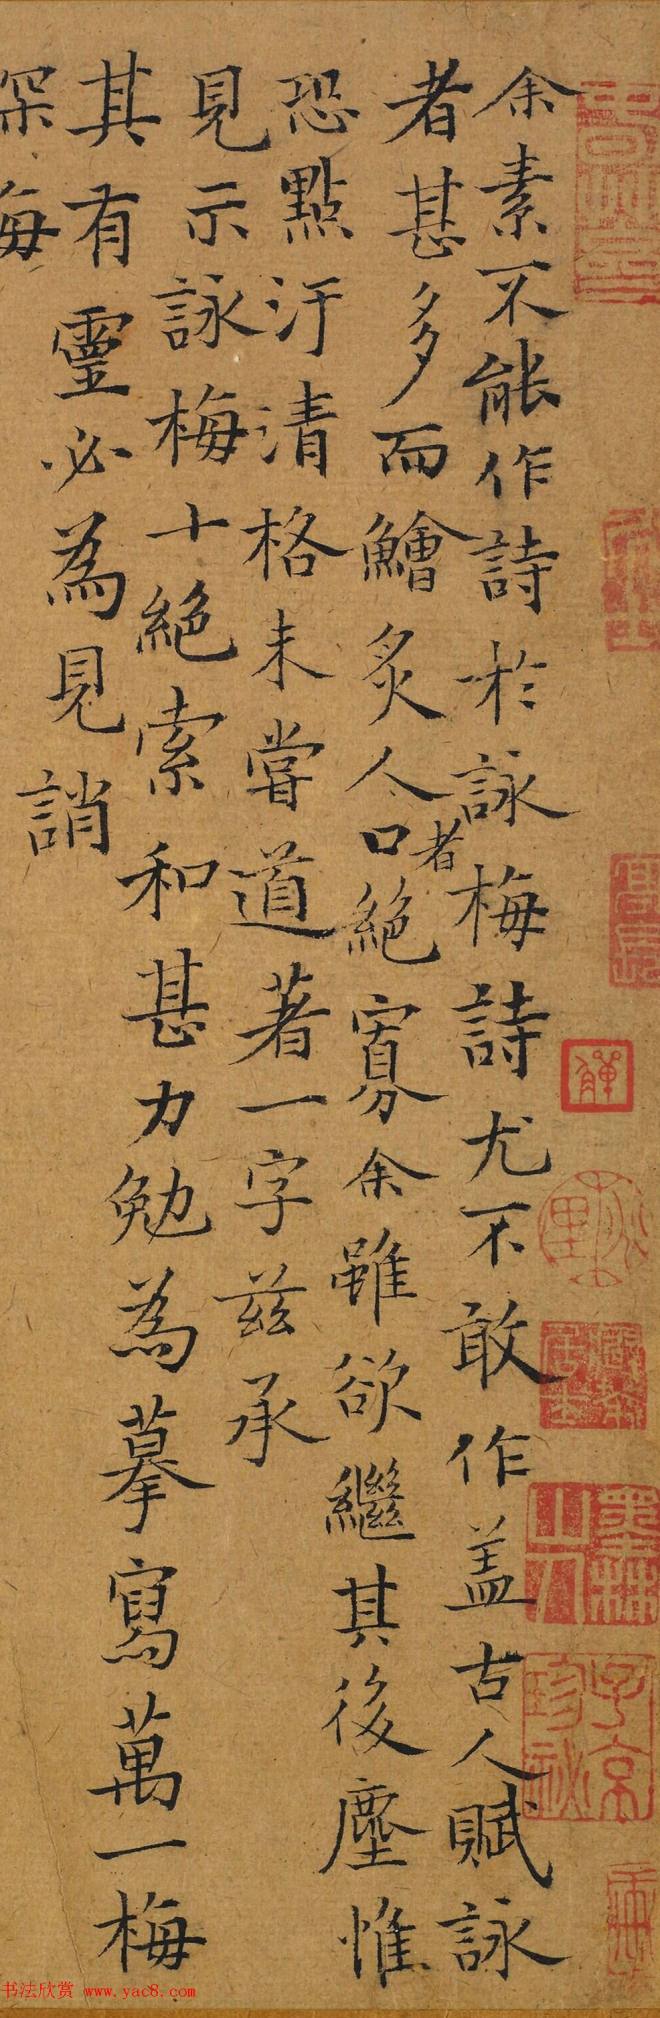 余素不能作詩於詠梅詩尤不敢作盖古人賦詠
者甚多而鱠炙人口者絕寡余雖欲繼其後塵惟
恐點汙清格未嘗道著一字兹承
見示詠梅十絕索和甚力勉為摹寫萬一梅
其有靈必為見誚
梅
子京
珍秘
书法欣赏 www.yac8.com